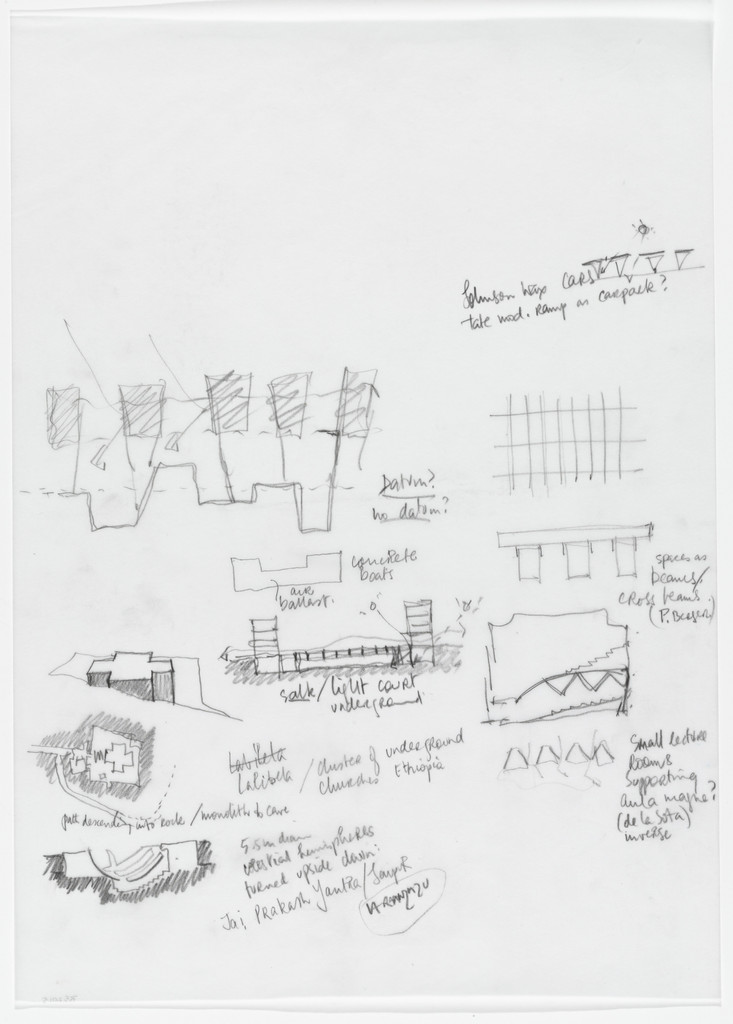 Johnson Wax CARS
tate mod. Ramp as carpark?
DATUM?
no datum?
concrete
boats
air
ballast.
spaces as
beams/
cross beams
salk/light court
underground
Lalibela
Lalibela / cluster of underground
churches Ethiopia
path descending into Rock / monolith to cave
small lecture
Rooms
supporting
aula magna?
(de la Sota)
inverse
5.5m diam
celestial hemispheres
turned upside down:
Jai Prakash Yantra/Jaipur